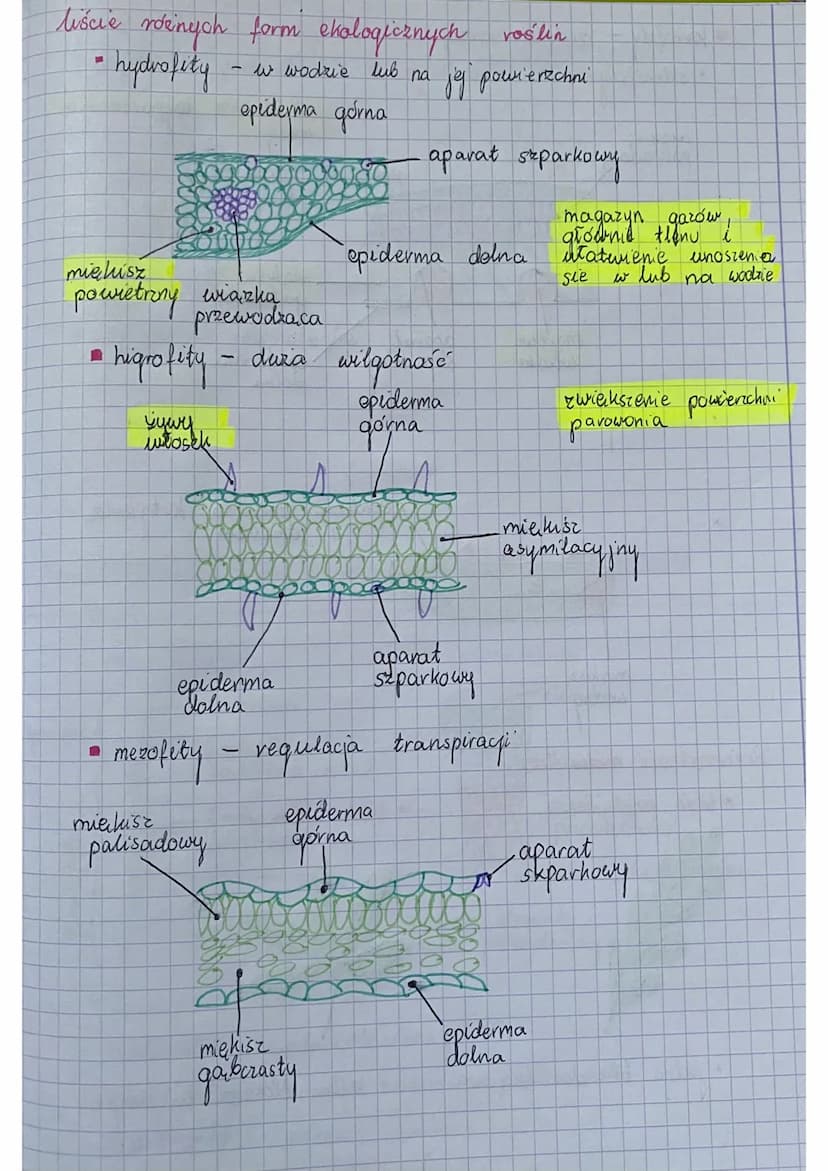 liście różnych form ekologicznych roślin
hydrofity - w wodzie lub na jej powierzchni
epiderma górna
aparat szparkowy
magazyn gazów,
głównie tlenu i
ułatwienie unoszenia
się w lub na wodzie
epiderma dolna
miękisz
powietrzny
wiązka
przewodząca
higrofity - duża wilgotność
epiderma
górna
zwiększenie powierzchni
parowania
żywy
włosek
miękisz
asymilacyjny
aparat
szparkowy
epiderma
dolna
mezofity - regulacja transpiracji
miękisz
palisadowy
epiderma
górna
aparat
skparkowy
epiderma
dolna
miękisz
gąbczasty